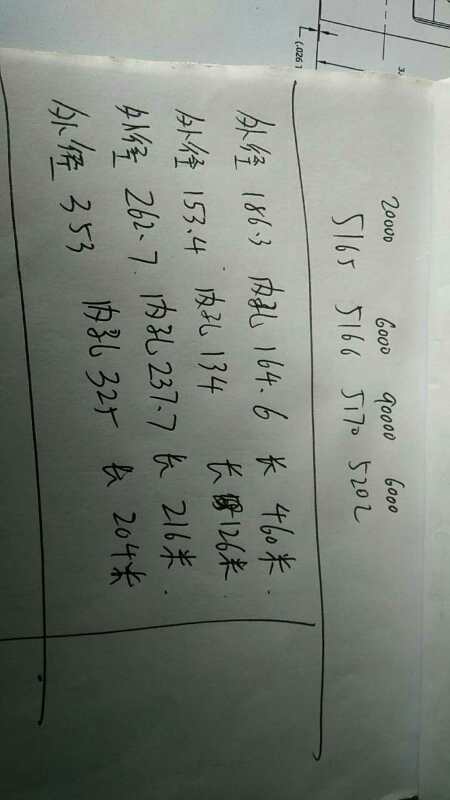 20000 6000 90000 6000
5165 5166 5170 5202
外径 186.3 内孔 164.6 长 460米.
外径 153.4. 内孔 134 长 126米.
外径 262.7. 内孔 237.7 长 216米.
外径 353 内孔 325 长 204米
(.026)